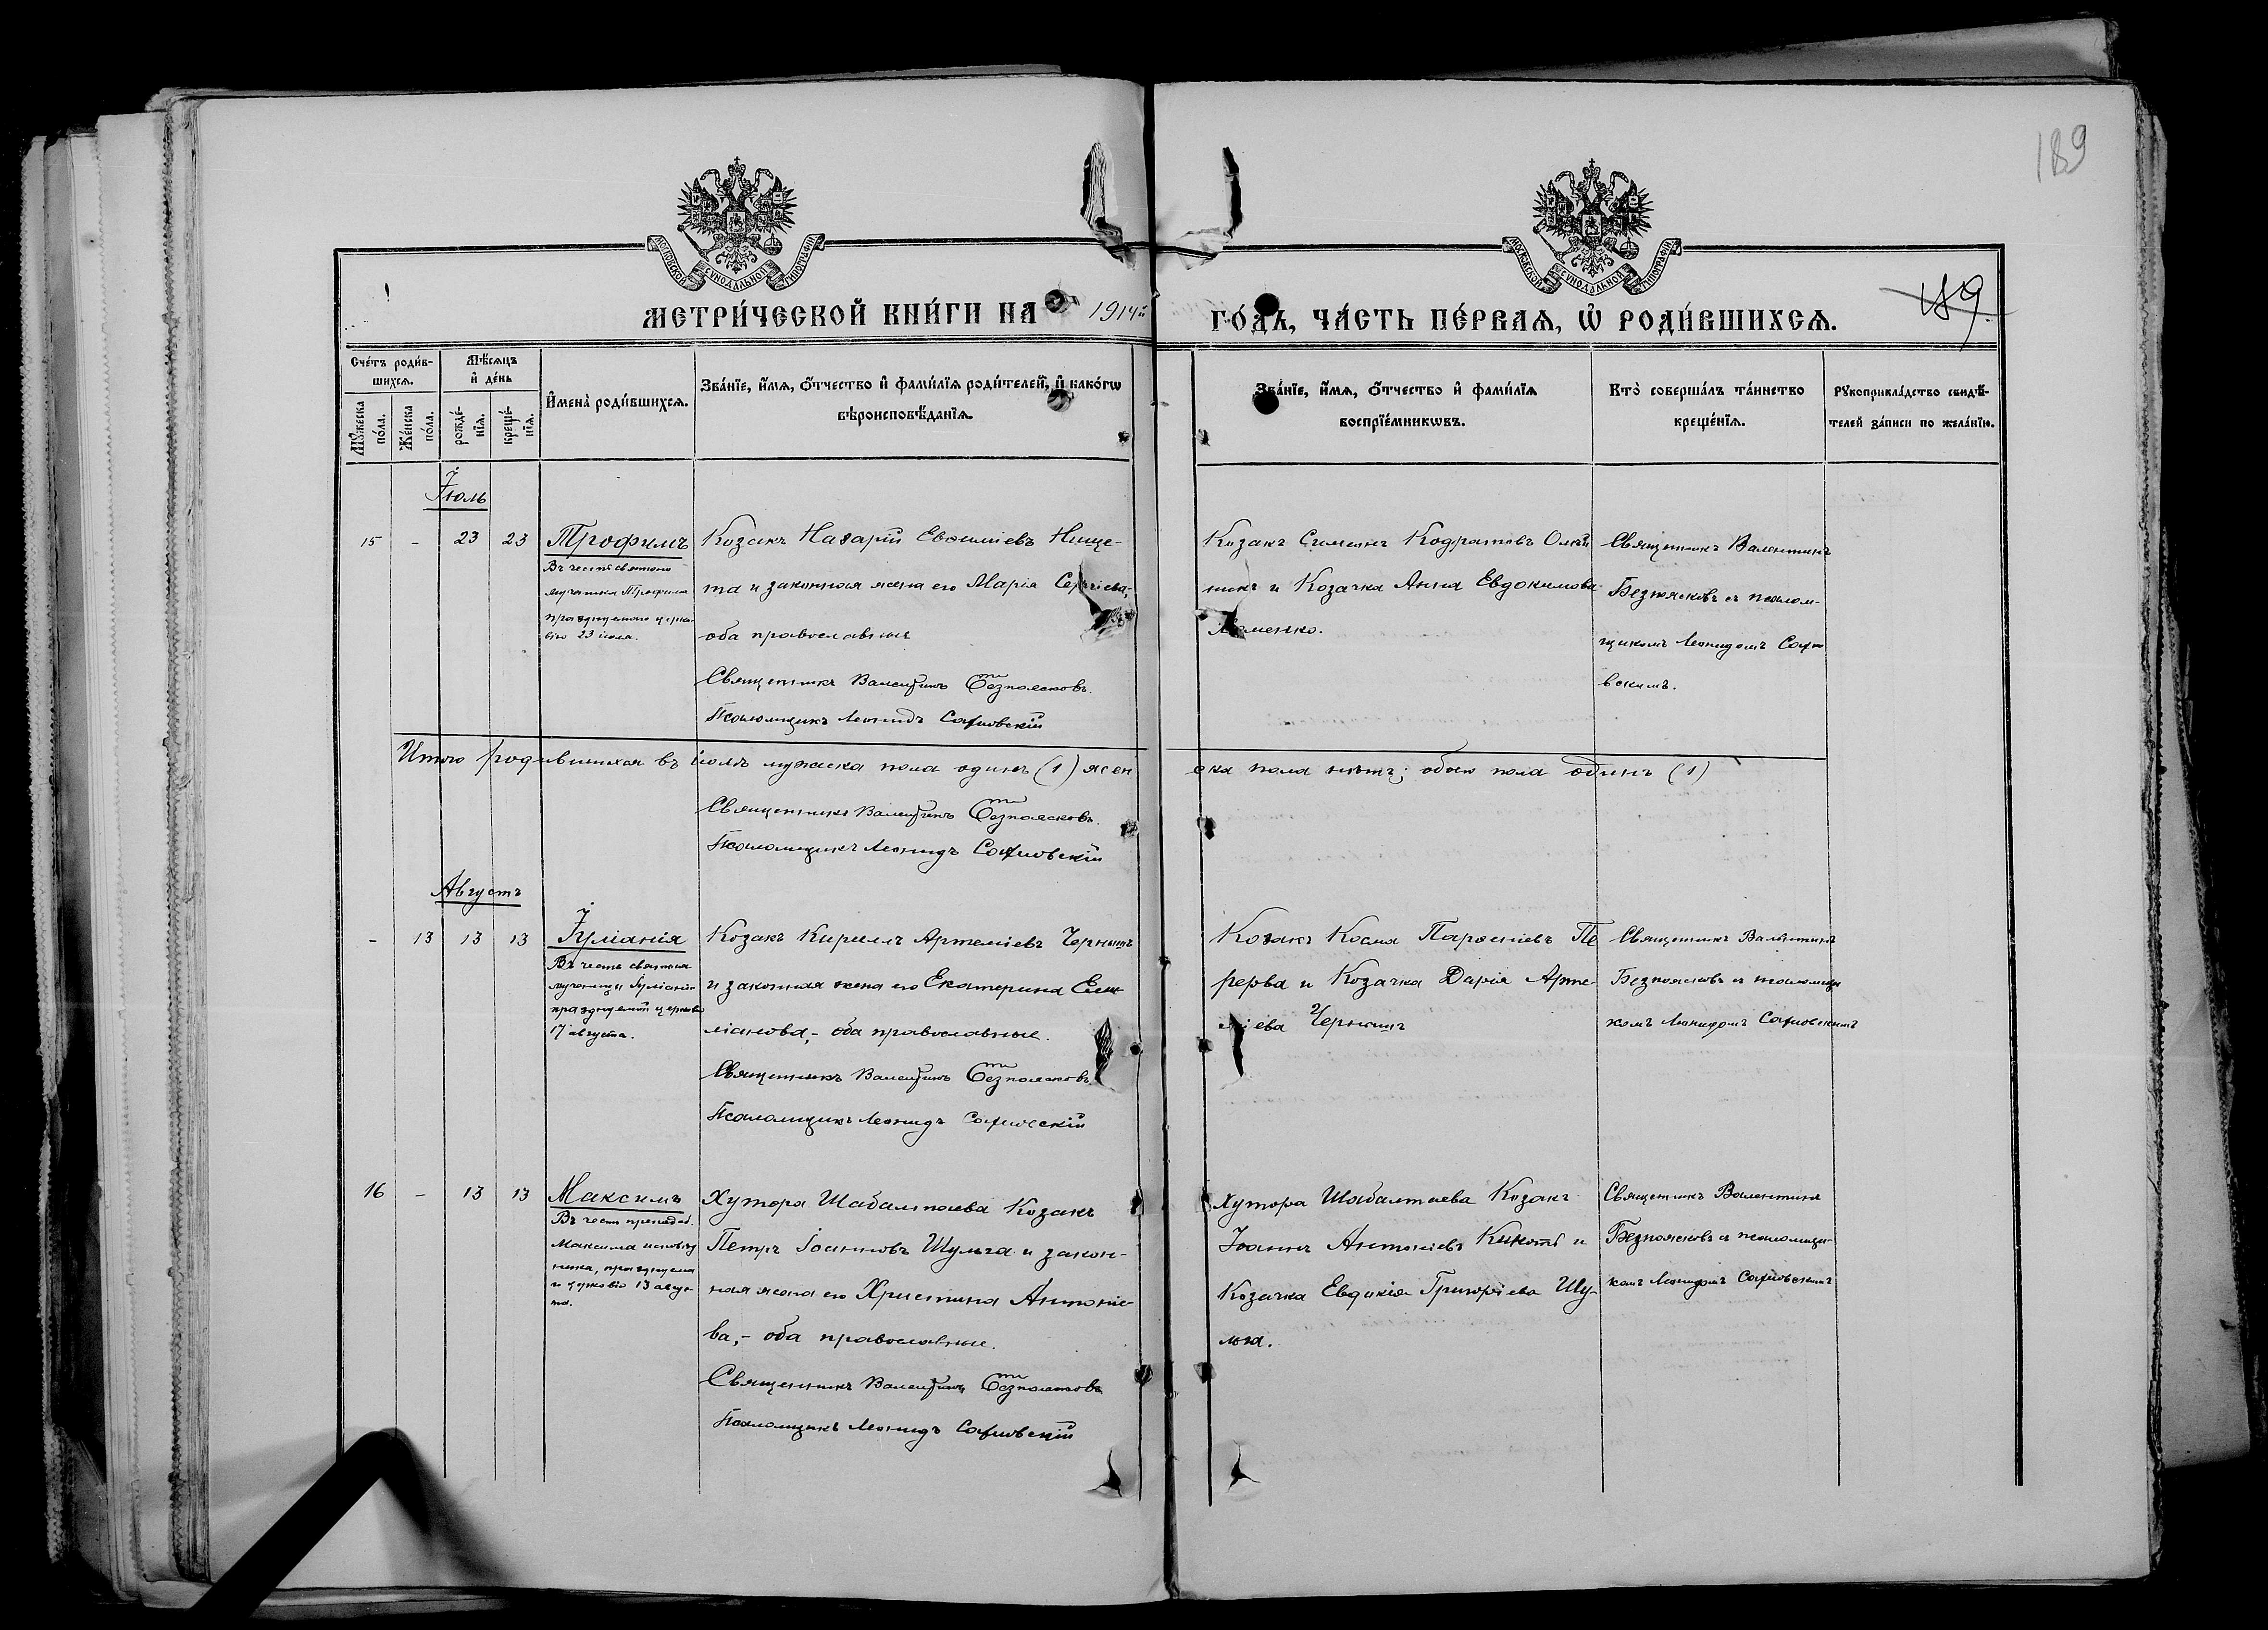 189
МОСКОВСКОЙ СѴНОДАЛЬНОЙ ТИПОГРАФІИ
МОСКОВСКОЙ СѴНОДАЛЬНОЙ ТИПОГРАФІИ
МЕТРИ́ЧЕСКОЙ КНИ́ГИ НА 1914й
ГО́ДЪ, ЧА́СТЬ ПЕ́РВАѦ, Ѡ҆ РОДИ́ВШИХСѦ.
189
Сче́тъ роди́в-
шихсѧ.
Мꙋ́жеска по́ла.
Же́нска по́ла.
Мѣ́сѧцъ
и҆ де́нь
рожде́-нїѧ.
креще́-нїѧ.
И҆мена̀ роди́вшихсѧ.
Зва́нїе, и҆́мѧ, ѻ҆́тчество и҆ фами́лїѧ роди́телей, и҆ како́гѡ
вѣроисповѣ́данїѧ.
Зва́нїе, и҆́мѧ, ѻ҆́тчество и҆ фами́лїѧ
воспрїе́мникѡвъ.
Кто̀ соверша́лъ та́инство
креще́нїѧ.
Рꙋкоприкла́дство свидѣ́-
телей за́писи по жела́нїю.
Іюль
15 - 23 23 Трофимъ
Въ честь святого
мученика Трофима
празднуемаго церко-
вію 23 іюля.
Козакъ Назарій Евѳиміевъ Нище-
та и законная жена его Марія Сергіева,
оба православные
Священникъ Валентинъ Безпоясковъ.
Псаломщикъ Леонидъ
Козакъ Симеонъ Кодратовъ
никъ и Козачка Анна Евдокимова
Священникъ Валентинъ
Безпоясковъ съ псалом-
щикомъ Леонидомъ
вскимъ.
Итого родившихся въ іюлѣ мужеска пола одинъ (1) жен
ска пола нѣтъ; обоего пола одинъ (1)
Священникъ Валентинъ Безпоясковъ.
Псаломщикъ Леонидъ
Августъ
- 13 13 13 Іуліанія
Въ честь святыя
мученицы Іуліаніи
празднуемой церковію
17 августа.
Козакъ Кириллъ Артеміевъ
и законная жена его Екатерина Еми-
ліанова, - оба православные.
Священникъ Валентинъ Безпоясковъ
Псаломщикъ Леонидъ
Козакъ Косма Парѳеніевъ Пе
рерва и Козачка Дарія Арте-
міева
Священникъ Валентинъ
Безпоясковъ съ псаломщи
комъ Леонидомъ
16 - 13 13 Максимъ
Въ честь преподоб.
Максима исповѣд
ника, празднуема
го церковію 13 авгус-
та.
Хутора Шабалтаева Козакъ
Петръ Іоанновъ Шульга и закон-
ная жена его Христина Антоніе-
ва, - оба православные.
Священникъ Валентинъ Безпоясковъ
Псаломщикъ Леонидъ
Хутора Шабалтаева Козакъ
Іоаннъ Антоніевъ и
Козачка Евдокія Григоріева Шу-
льга.
Священникъ Валентинъ
Безпоясковъ съ псаломщи-
комъ Леонидомъ